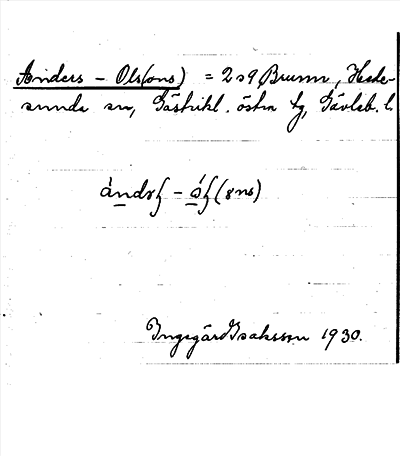 Anders - Ols(ons) = 2 s9 Brunn, Hede-
sunda sn, Gästrikl. östra tg, Gävleb. l.
Ingegärd Isaksson 1930.